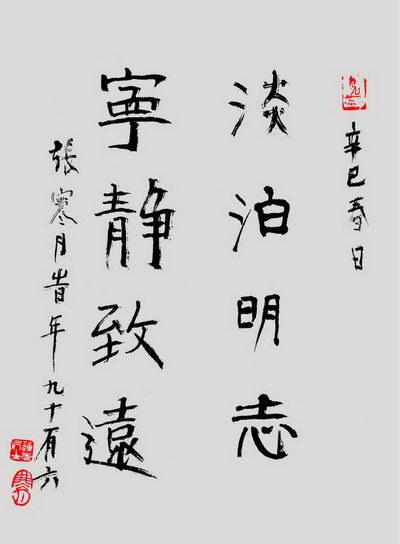 辛巳春日
淡泊明志
寧静致遠
張寒月旹年九十有六